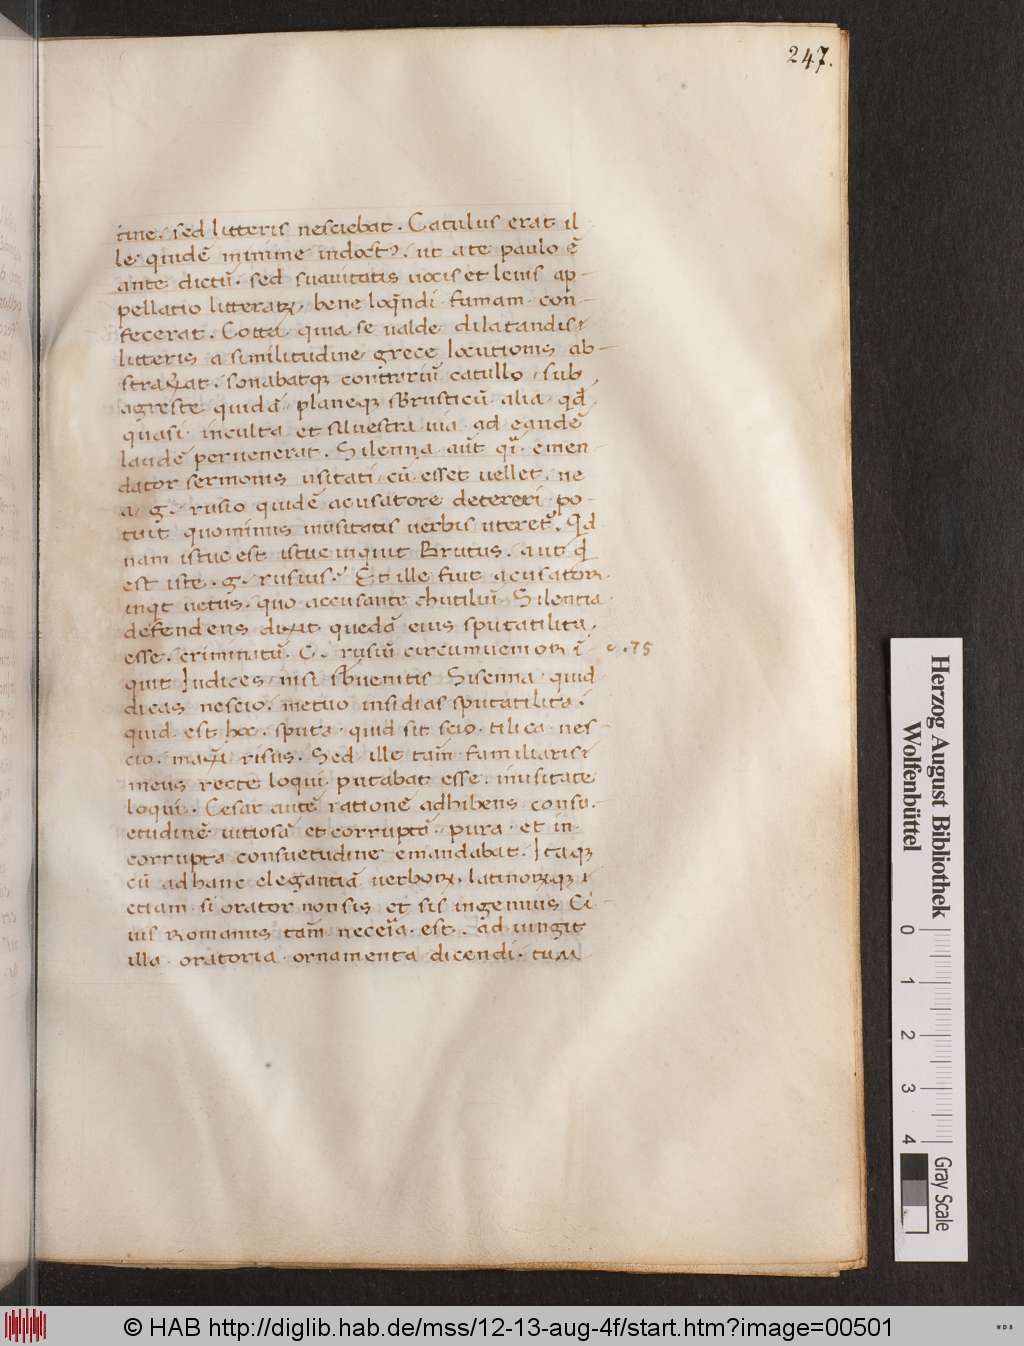 247.
tine. sed litteris nesciebat. Catulus erat il
le quidē minime indoctꝰ. ut a te paulo ē
ante dictū. sed suauitatis uocis et lenis ap-
pellatio litteraꝝ. bene loqn̄di famam con-
fecerat. Cotta quia se ualde dilatandis
litteris a similitudine grece locutionis ab-
straxat. sonabatqꝫ contrariū catullo, sub
agreste quidā planeqꝫ sbrusticū alia qd̄
quasi inculta et siluestra uia ad eandē
laudē peruenerat. Silenna aūt qi emen
dator sermonis usitati cū esset uellet. ne
a. g. rusio quidē acusatore deterreri po-
tuit quominus inusitatis uerbis uteretᷣ. Qd
nam istuc est istuc inquit Brutus. aut q
est iste. g. rusius? Et ille fuit acusator.
inqt uetus. quo accusante chutiluī Silentia
defendens dixit quedā eius sputatilita
esse. criminatū. C. rusiū circumuenior ī c. 75
quit Iudices nisi sbuenitis Sisenna quid
dicas nescio. metuo insidias sputatilita.
quid est hoc. sputa quid sit scio. tilica nes-
cio. maxi risus. Sed ille tam̄ familiarisi
meus recte loqui putabat esse. inusitate
loqui. Cesar autē rationē adhibens consu.
etudinē uitiosā et corruptā. pura et in
corrupta consuetudine emandabat. Itaqꝫ
cū ad hanc elegantiā uerboꝝ. latinoꝝqꝫ
etiam si orator non sis et sis ingenuus Ci
uis Romanus tam̄ neceia est. ad iungit
illa oratoria ornamenta dicendi. tum
Herzog August Bibliothek
Wolfenbüttel
0 1 2 3 4
Gray Scale
© HAB http://diglib.hab.de/mss/12-13-aug-4f/start.htm?image=00501